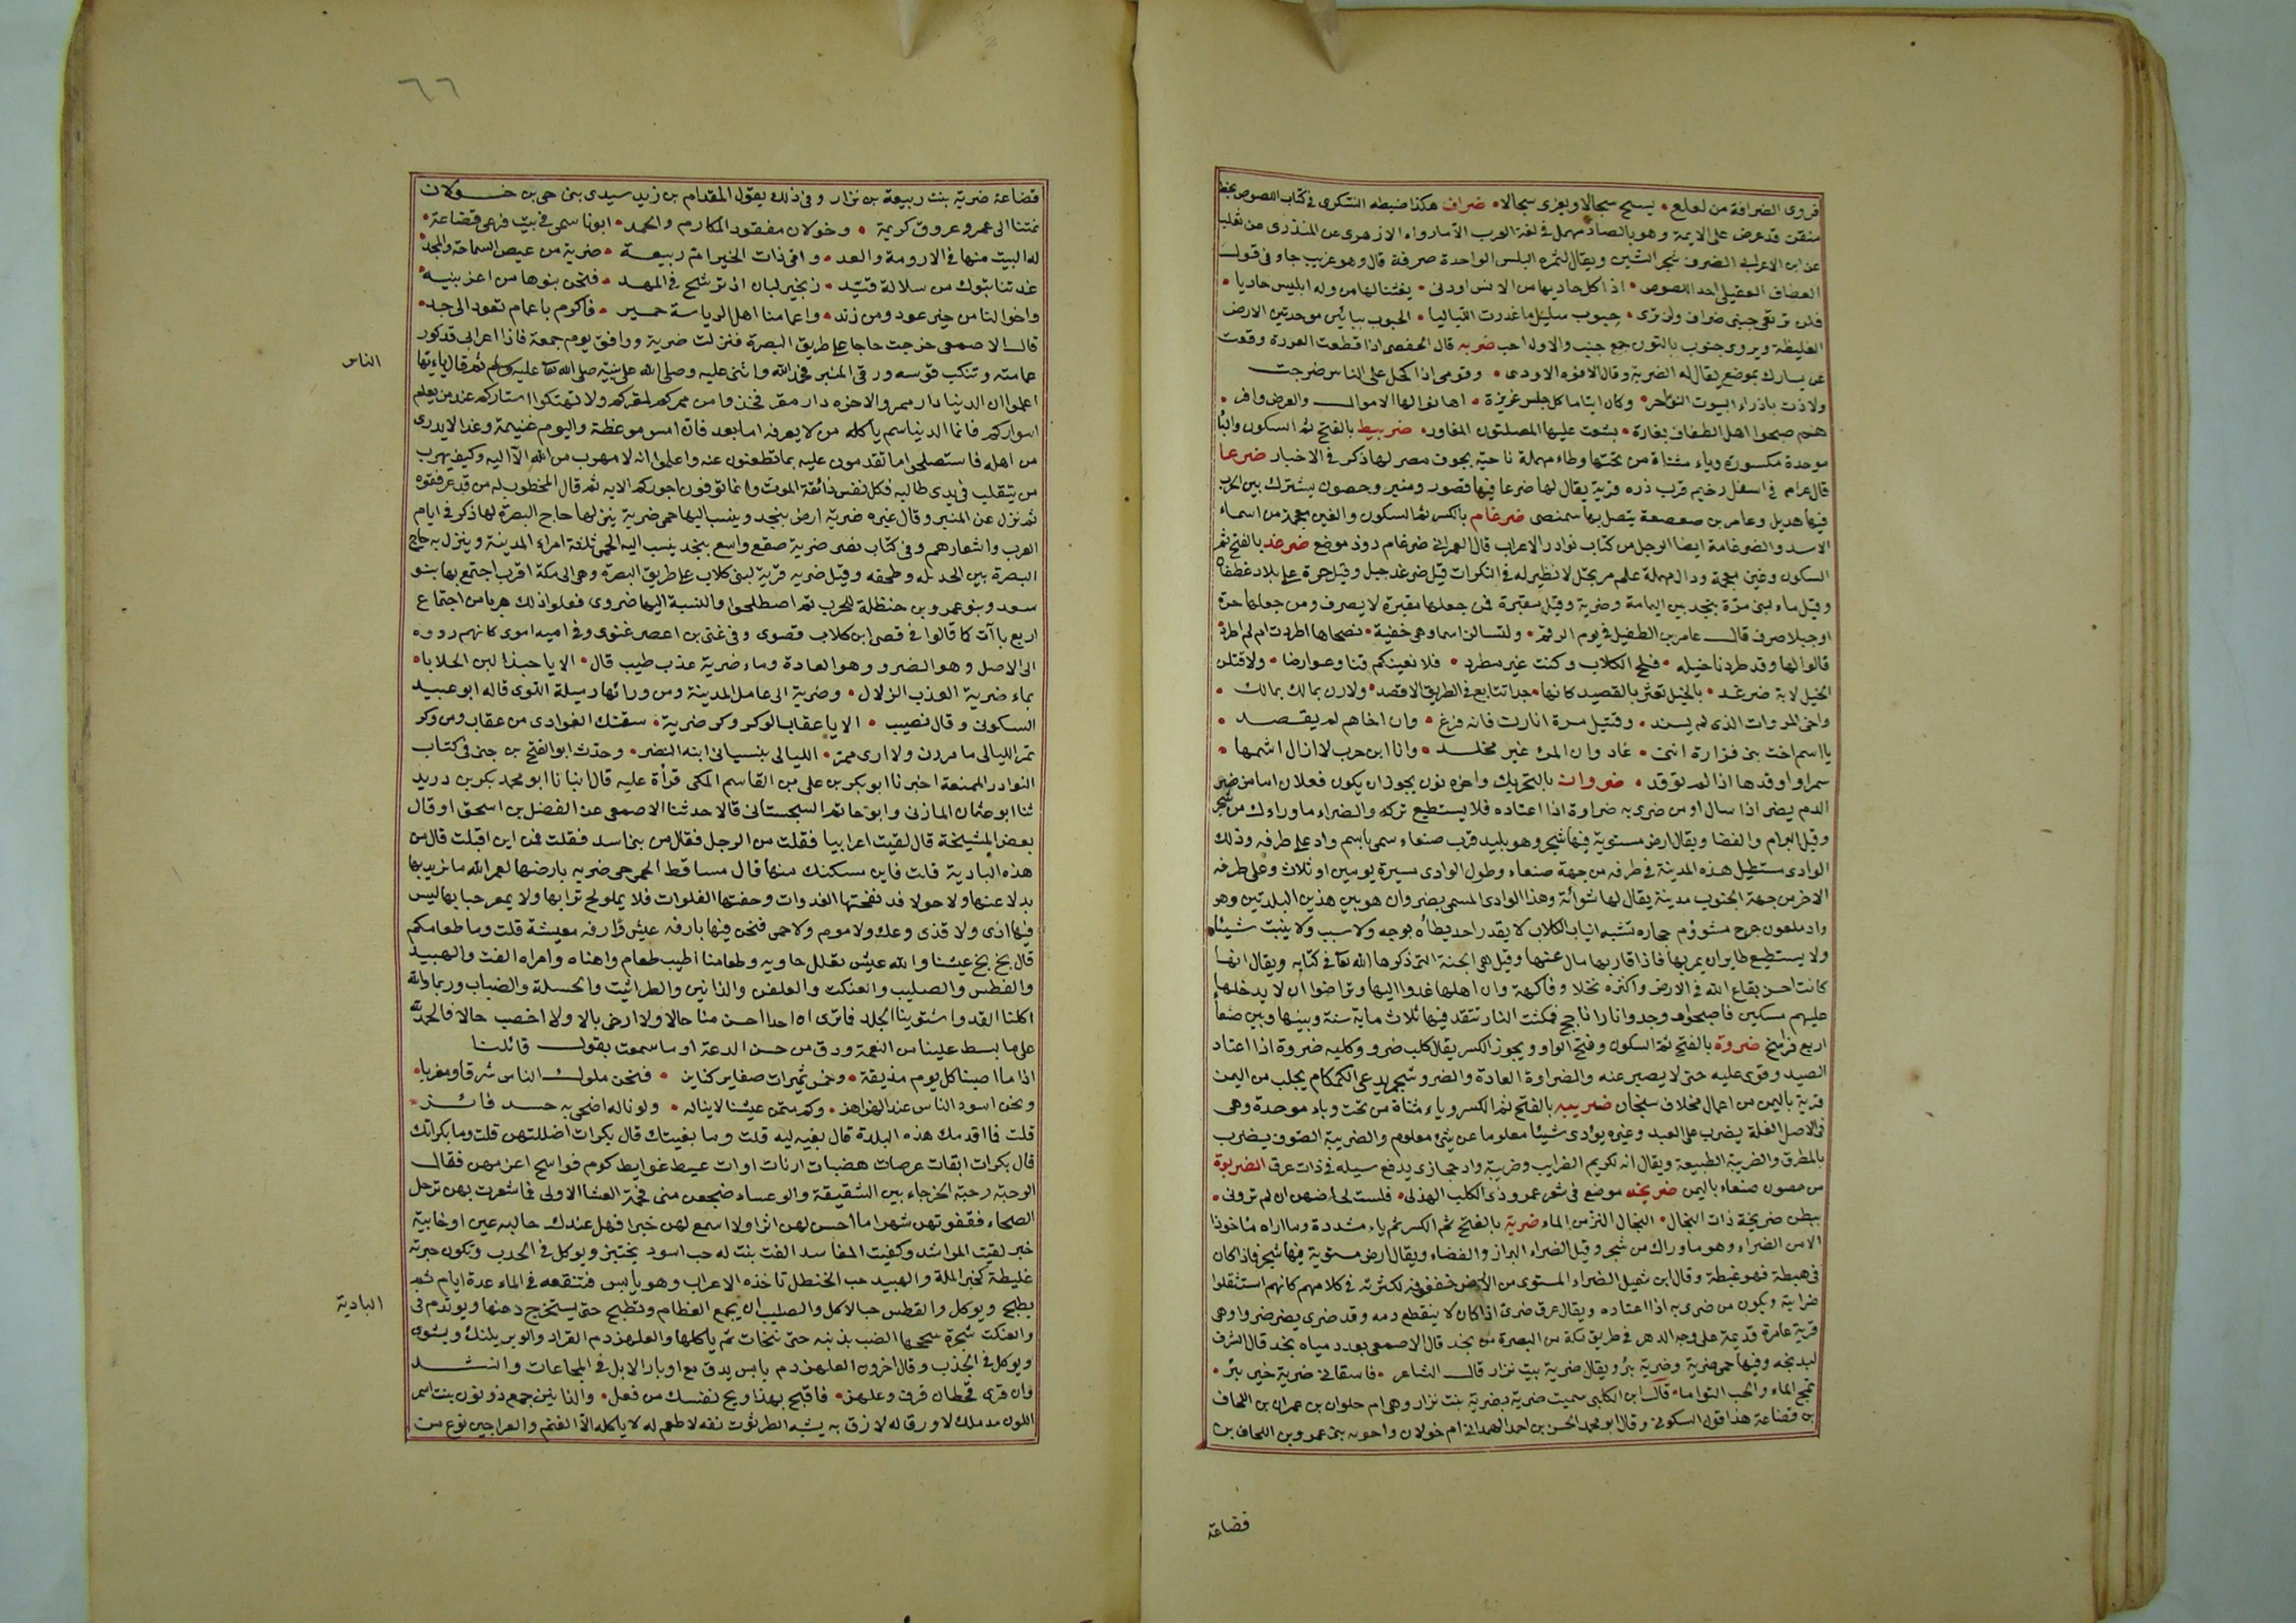 فروى الضرافة من لعلع • يسيح سجالا ويعزى سجالا • ضراف هكذا ضبطه السكرى فى كتاب اللصوص بخط
متقن قد عرض على الايمة وهو بالصاد مهمل فى لغة العرب الا ما رواه الازهرى عن المنذرى عن ثعلب
عن ابن الاعرابى الضرف شجر التين ويقال لثمره البلس الواحدة ضرفة قال وهو غريب جاء فى قول
العطاف العقيلى احد اللصوص • اذا كل حاديها من الانس اودنى • بعثنا لها من وله ابليس حاديا •
فلن ترتعى جنبى ضراف ولن ترى • جبوب سليل ما عددت اللياليا • الجبوب بباءين موحدتين الارض
الغليظة ويروى جنوب بالنون جمع جنب والاول احب ضربه قال الحفصى اذا قطعت العردة وقعت
عن يسارك بموضع يقال له الضربة وقال الافوه الاودى • وقومى اذا كحل على الناس ضرجت
ولاذت باذراء البيوت النواحر • وكان ايتاما كل جلس غزيرة • اهانوا لها الاموال والعرض وافر •
هم صبحوا اهل الطفاف بغارة • بشعث عليها المصلتون المغاور • ضربيط بالفتح ثم السكون والباء
موحدة مكسورة وياء مثناة من تحتها وطاء مهملة ناحية بحوف مصر لها ذكر فى الاخبار ضرعا
قال عرام فى اسفل رخيم قرب ذره قرية يقال لها ضرعا فيها قصور ومنبر وحصون يشترك بين الحرث
فيها هذيل وعامر بن صعصعة يتصل بها سمنصى ضرغام بالكسر ثم السكون والغين معجمة من اسماء
الاسد والضرغامة ايضا الرجل من كتاب نوادر الاعراب قال العمرانى ضرغام دود موضع ضرغد بالفتح ثم
السكون وغين معجمة ودال مهملة علم مرتجل لا نظير له فى النكرات قيل ضرغد جبل وقيل حرة على بلاد غطفان
وقيل ماء لبنى مرة بنجد بين اليمامة وضرية وقيل مقبرة فمن جعلها مقبرة لا يصرف ومن جعلها حرة
او جبلا صرف قال عامر بن الطفيل فى يوم الرقم • ولتسالن اسما وهى حفية • نصحاها اطردت ام لم اطرد
قالوا لها وقد طردنا خيله • قلح الكلاب وكنت غير مطرد • فلا نعينكم قنا وعوارضا • ولاقتلن
الخيل لابة ضرغد • بالخيل تعثر بالقصيد كانها • حدا تتابع فى الطريق الاقصد • ولارن بمالك بمالك •
واخى المروات الذى لم يسند • وقتيل مرة اثارت فانه فرغ • وان اخاهم لم يقصد •
يا اسم اخت بنى فزارة اننى • غاد وان المرء غير مخلد • وانا ابن حرب لا ازال اشبها •
سمرا واوقدها اذا لم توقد • ضروان بالتحريك واخره نون يجوز ان يكون فعلان اما من ضرى
الدم يضر اذا سال او من ضرى به ضراوة اذا اعتاده فلا يستطيع تركه والضراء ما وراءك من شجر
وقيل البراح والفضا ويقال ارض مستوية فيها شجر وهو بليد قرب صنعاء سمى باسم واد على طرفه وذلك
الوادى مستطيل هذه المدينة فى طرفه من جهة صنعاء وطول الوادى مسيرة يومين او ثلاث وعلى طرفه
الاخر من جهة الجنوب مدينة يقال لها شوابة وهذا الوادى المسمى بضروان هو بين هذين البلدتين وهو
واد ملعون حرج مشؤوم حجاره تشبه انياب الكلاب لا يقدر احد يطأه بوجه ولا سبب ولا ينبت شيئا
ولا يستطيع طاير ان يمر بها فاذا قاربها مال عنها وقيل هى الجنة التى ذكرها الله تعا فى كتابه ويقال انها
كانت احسن بقاع الله فى الارض واكثره نخلا وفاكهة وان اهلها غدوا اليها وتراضوا ان لا يدخلها
عليهم مسكين فاصبحوا فوجدوا نارا تاجج فمكثت النار تتقد فيها ثلاث ماية سنة وبينها وبين صنعا
اربع فراسخ ضروة بالفتح ثم السكون وفتح الواو ويجوز الكسر يقال كلب ضرو وكلبه ضروة اذا اعتاد
الصيد وقوى عليه حتى لا يصبر عنه والضراوة العادة والضرو شجر يدعى الكمكام يجلب من اليمن
قرية باليمن من اعمال مخلاف سنحان ضريبه بالفتح ثم الكسر وياء مثناة من تحت وباء موحدة وهى
فى الاصل الغلة يضرب على العبد وغيره يؤدى شيئا معلوما عن شئ معلوم والضريبة الصوف يضرب
بالمطرق والضريبة الطبيعة ويقال انه لكريم الضرايب وضريبة واد حجازى يدفع سيله فى ذات عرق الضربوة
من حصون صنعاء باليمن ضريحه موضع فى شعر عمرو ذى الكلب الهذلى • فلست لحاضهن ان لم ترونى •
ببطن ضريحة ذات النجال • النجال النز من الماء ضرية بالفتح ثم الكسر ثم ياء مشددة وما اراه ماخوذا
الا من الضراء وهو ما وراك من شجر وقيل الضراء البراز والفضاء ويقال ارض مستوية فيها شجر فاذا كان
فى هبطة فهو غيطة وقال ابن شميل الضراء المستوى من الارض خففوه لكثرته فى كلامهم كانهم استثقلوا
ضراية ويكون من ضرى به اذا اعتاده ويقال عرق ضرى اذا كان لا ينقطع دمه وقد ضرى يضر ضروا وهى
قرية عامرة قديمة على وجه الدهر فى طريق مكة من البصرة من نجد قال الاصمعى يعدد مياه نجد قال الشرف
لبد نجد وفيها حمى ضرية وضرية بئر ويقال ضرية بيت نزار قال الشاعر • فاسقانى ضرية خير بئر •
تمج الماء والحب التواما • قال ابن الكلبى سميت ضرية بضرية بنت نزار وهى ام حلوان بن عمران بن الحاف
بن قضاعة هذا قول السكونى وقال ابو محمد الحسن بن احمد الهمدانى ام خولان واخوته بنى عمرو بن الحاف بن
قضاعة
٦٦
قضاعة ضرية بنت ربيعة بن نزار وفى ذلك يقول المقدام بن زيد سيدى بنى حى بن خولان
نمتنا الى عمرو عروق كريمة • وخولان مفقود المكارم والحمد • ابونا سمى فى بيت فرعى قضاعة •
له البيت منها فى الارومة والعد • وامى ذات الخير ام ربيعة • ضرية من عيص السماحة والمجد •
غدتنا بتوك من سلالة قيد • بخير لبان اذ ترشح فى المهد • فنحن بنوها من اعز بنيه •
واخوالنا من خير عود ومن زند • واعمامنا اهل الرياسة حمير • فاكرم باعمام تعود الى جد •
قال الاصمعى خرجت حاجا على طريق البصرة فنزلت ضرية ووافق يوم جمعة فاذا اعرابى قد كور
عمامته وتنكب قوسه ورقى المنبر فحمد الله واثنى عليه وصلى الله على نبيه صلى الله تعا عليه وسلم ثم قال ياءيها
الناس
اعلموا ان الدنيا دار ممر والاخره دار مقر فخذوا من ممركم لمقركم ولا تهتكوا استاركم عند من يعلم
اسراركم فانما الدنيا سم ياكله من لا يعرفه اما بعد فان امس موعظة واليوم غنيمة وغدا لا يدرى
من اهله فاستصلحوا ما تقدمون عليه بما تظعنون عنه واعلموا انه لا مهرب من الله الا اليه وكيف يهرب
من يتقلب فى يدى طالبه فكل نفس ذائقة الموت وانما توفون اجوركم الايه ثم قال المخطوب له من قد عرفتموه
ثم نزل عن المنبر وقال غيره ضرية ارض بنجد وينسب اليها حمى ضرية ينزلها حاج البصرة لها ذكر فى ايام
العرب واشعارهم وفى كتاب نصر ضرية صقع واسع بنجد ينسب اليه الحمى ثلثة امراء المدينة وينزل به حاج
البصرة بين الجديله وطخفه وقيل ضريه قرية لبنى كلاب على طريق البصرة وهى الى مكة اقرب اجتمع بها بنو
سعد وبنو عمرو بن حنظلة للحرب ثم اصطلحوا والنسبة اليها ضروى فعلوا ذلك هربا من اجتماع
اربع ياآت كا قالوا فى قصى ابن كلاب قصوى وفى غنى بن اعصر غنوى وفى اميه اموى كانهم ردوه
الى الاصل وهو الضرو وهو العادة وماء ضرية عذب طيب قال • الا يا حبذا لبن الحلايا •
بماء ضرية العذب الزلال • وضرية الى عامل المدينة ومن ورائها رميلة اللوى قاله ابو عبيد
السكونى وقال نصيب • الا يا عقاب الوكر وكر ضرية • سقتك الغوادى من عقاب ومن وكر
تمر الليالى ما مررن ولا ارى ممر • الليالى بنسيانى ابنه النضر • وحدث ابو الفتح بن جنى فى كتاب
النوادر الممتعة اخبرنا ابو بكر بن على بن القاسم المكى قرأة عليه قال انبانا ابو محمد بكر بن دريد
ثنا ابو عثمان المازنى وابو حاتم السجستانى قالا حدثنا الاصمعى عن الفضل بن اسحق او قال
بعض المشيخة قال لقيت اعرابيا فقلت من الرجل فقال من بنى اسد فقلت فمن اين اقبلت قال من
هذه البادية قلت فاين مسكنك منها قال مساقط الحمى حمى ضريه بارضها لعمر الله ما نريد بها
بدلا عنها ولا حولا قد نفحتها الغدوات وحفتها الفلوات فلا يملولح ترابها ولا يمعر جبابها ليس
فيها اذى ولا قذى وعك ولا موم ولا حمى فنحن فيها بارفه عيش وارفه معيشة قلت وما طعامكم
قال بخ بخ عيشنا والله عيش تعلل جاويه وطعامنا اطيب طعام واهناه وامراه الفث والهبيد
والفطس والصليب والعنكث والعلهز والذانين والطراثيث والحسلة والضباب وربما والله
اكلنا القد واشتوينا الجلد فما نرى ان احدا احسن منا حالا ولا ارخى بالا ولا اخصب حالا فالحمد لله
على ما بسط علينا من النعمة ورزق من حسن الدعة او ما سمعت بقول قائلنا
اذا ما اصبنا كل يوم مذيقة • وخمس تميرات صغار كناين • فنحن ملوك الناس شرقا ومغربا •
ونحن اسود الناس عند الهزاهز • وكم متمن عيشنا لا يناله • ولو ناله اضحى به حسد فائز •
قلت فما اقدمك هذه البلدة قال بغيه لبه قلت وما بغيتك قال بكرات اضللتهن قلت وما بكراتك
قال بكرات ابقات عرصات هضبات ارنات اوات عيط غوايط كوم فواسح اعزبهن فقال
الوحبة رحبة الخرجاء بين الشقيقة والوعساء ضجعن منى فحمة العشا الاولى فما شعرت بهن ترجل
الضحاء فقفوتهن شهرا ما احس لهن اثرا ولا اسمع لهن خبرا فهل عندك جالبه عين او خابية
خبر لقيت المراشد وكفيت المفاسد الفث بنت له حب اسود يختبز ويوكل فى الجدب وتكون خبزته
غليظة كخبز الملة والهبيد حب الحنظل تاخذه الاعراب وهو يابس فتنقعه فى الماء عدة ايام ثم
يطبخ ويوكل والفطس حب الاكل والصليب ان يجمع العظام وتطبخ حتى يستخرج دهنها ويوتدم فى
البادية
والعنكث شجرة سحجها الضب بذنبه حتى نجات ثم ياكلها والعلهز دم القراد والوبر يلبك ويشوى
ويوكل فى الجدب وقال اخرون العلهز دم يابس يدق مع اوبار الابل فى المجاعات وانشد
وان قرى قحطان قرف وعلهز • فاقبح بهذا ويح نفسك من فعل • والذانين جمع ذونون بنت اسمر
اللون مدملك لا ورقا له لازق به يشبه الطرثوث تفه لا طعم له لا ياكله الا الغنم والعراجين نوع من